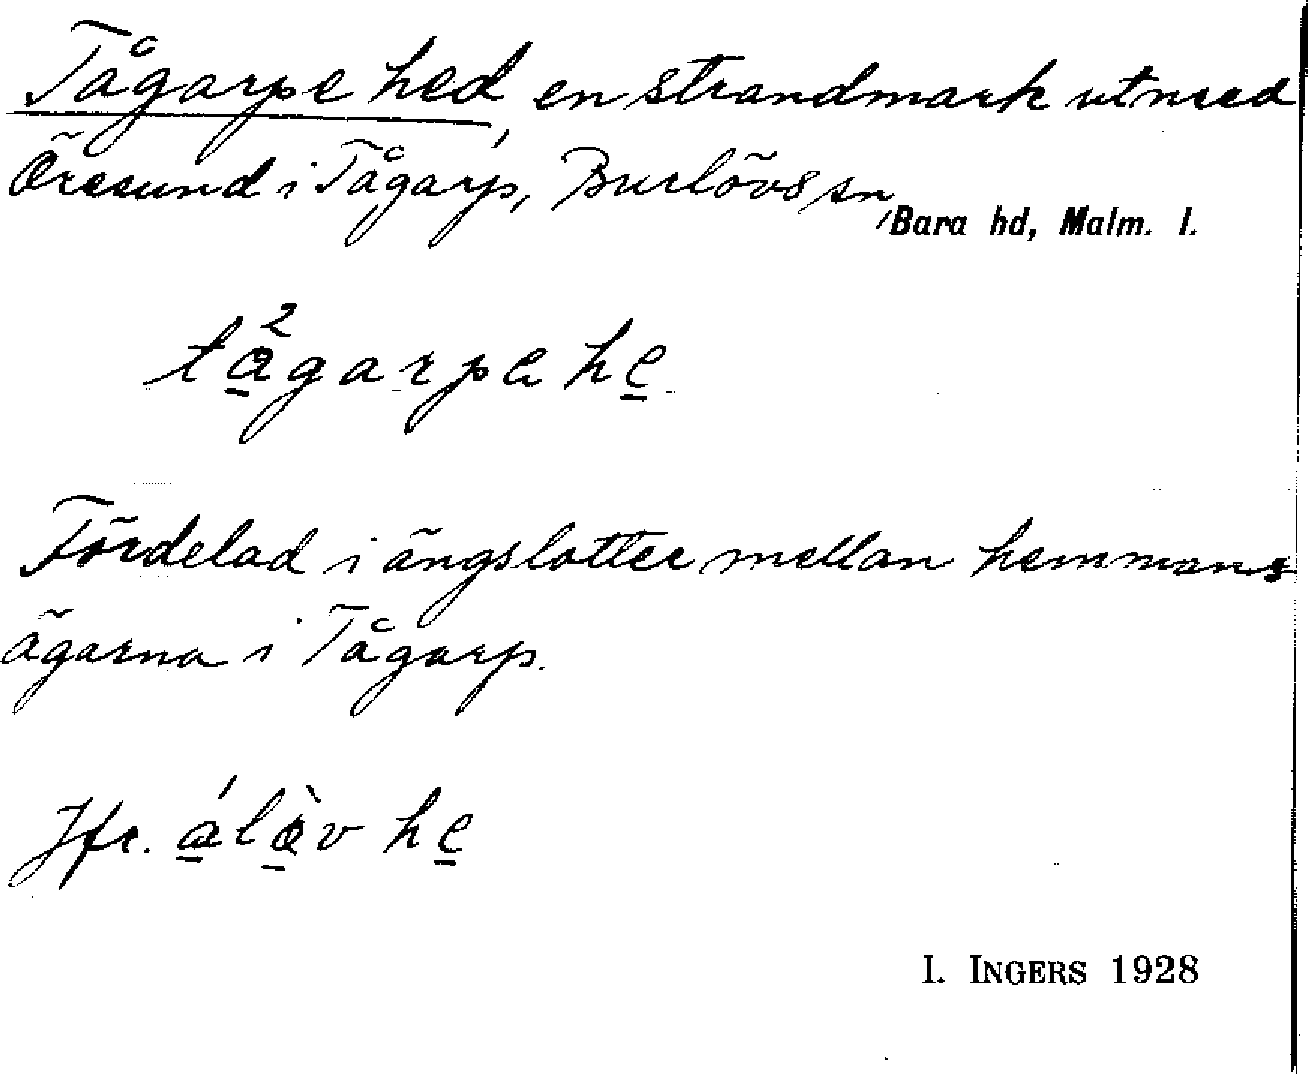 Tågarpe hed, en strandmark utmed
Öresund i Tågarp, Burlövs sn, Bara hd, Malm. l.
tågarpe he
Fördelad i ängslotter mellan hemmans
ägarna i Tågarp.
Jfr. álàv he
I. INGERS 1928